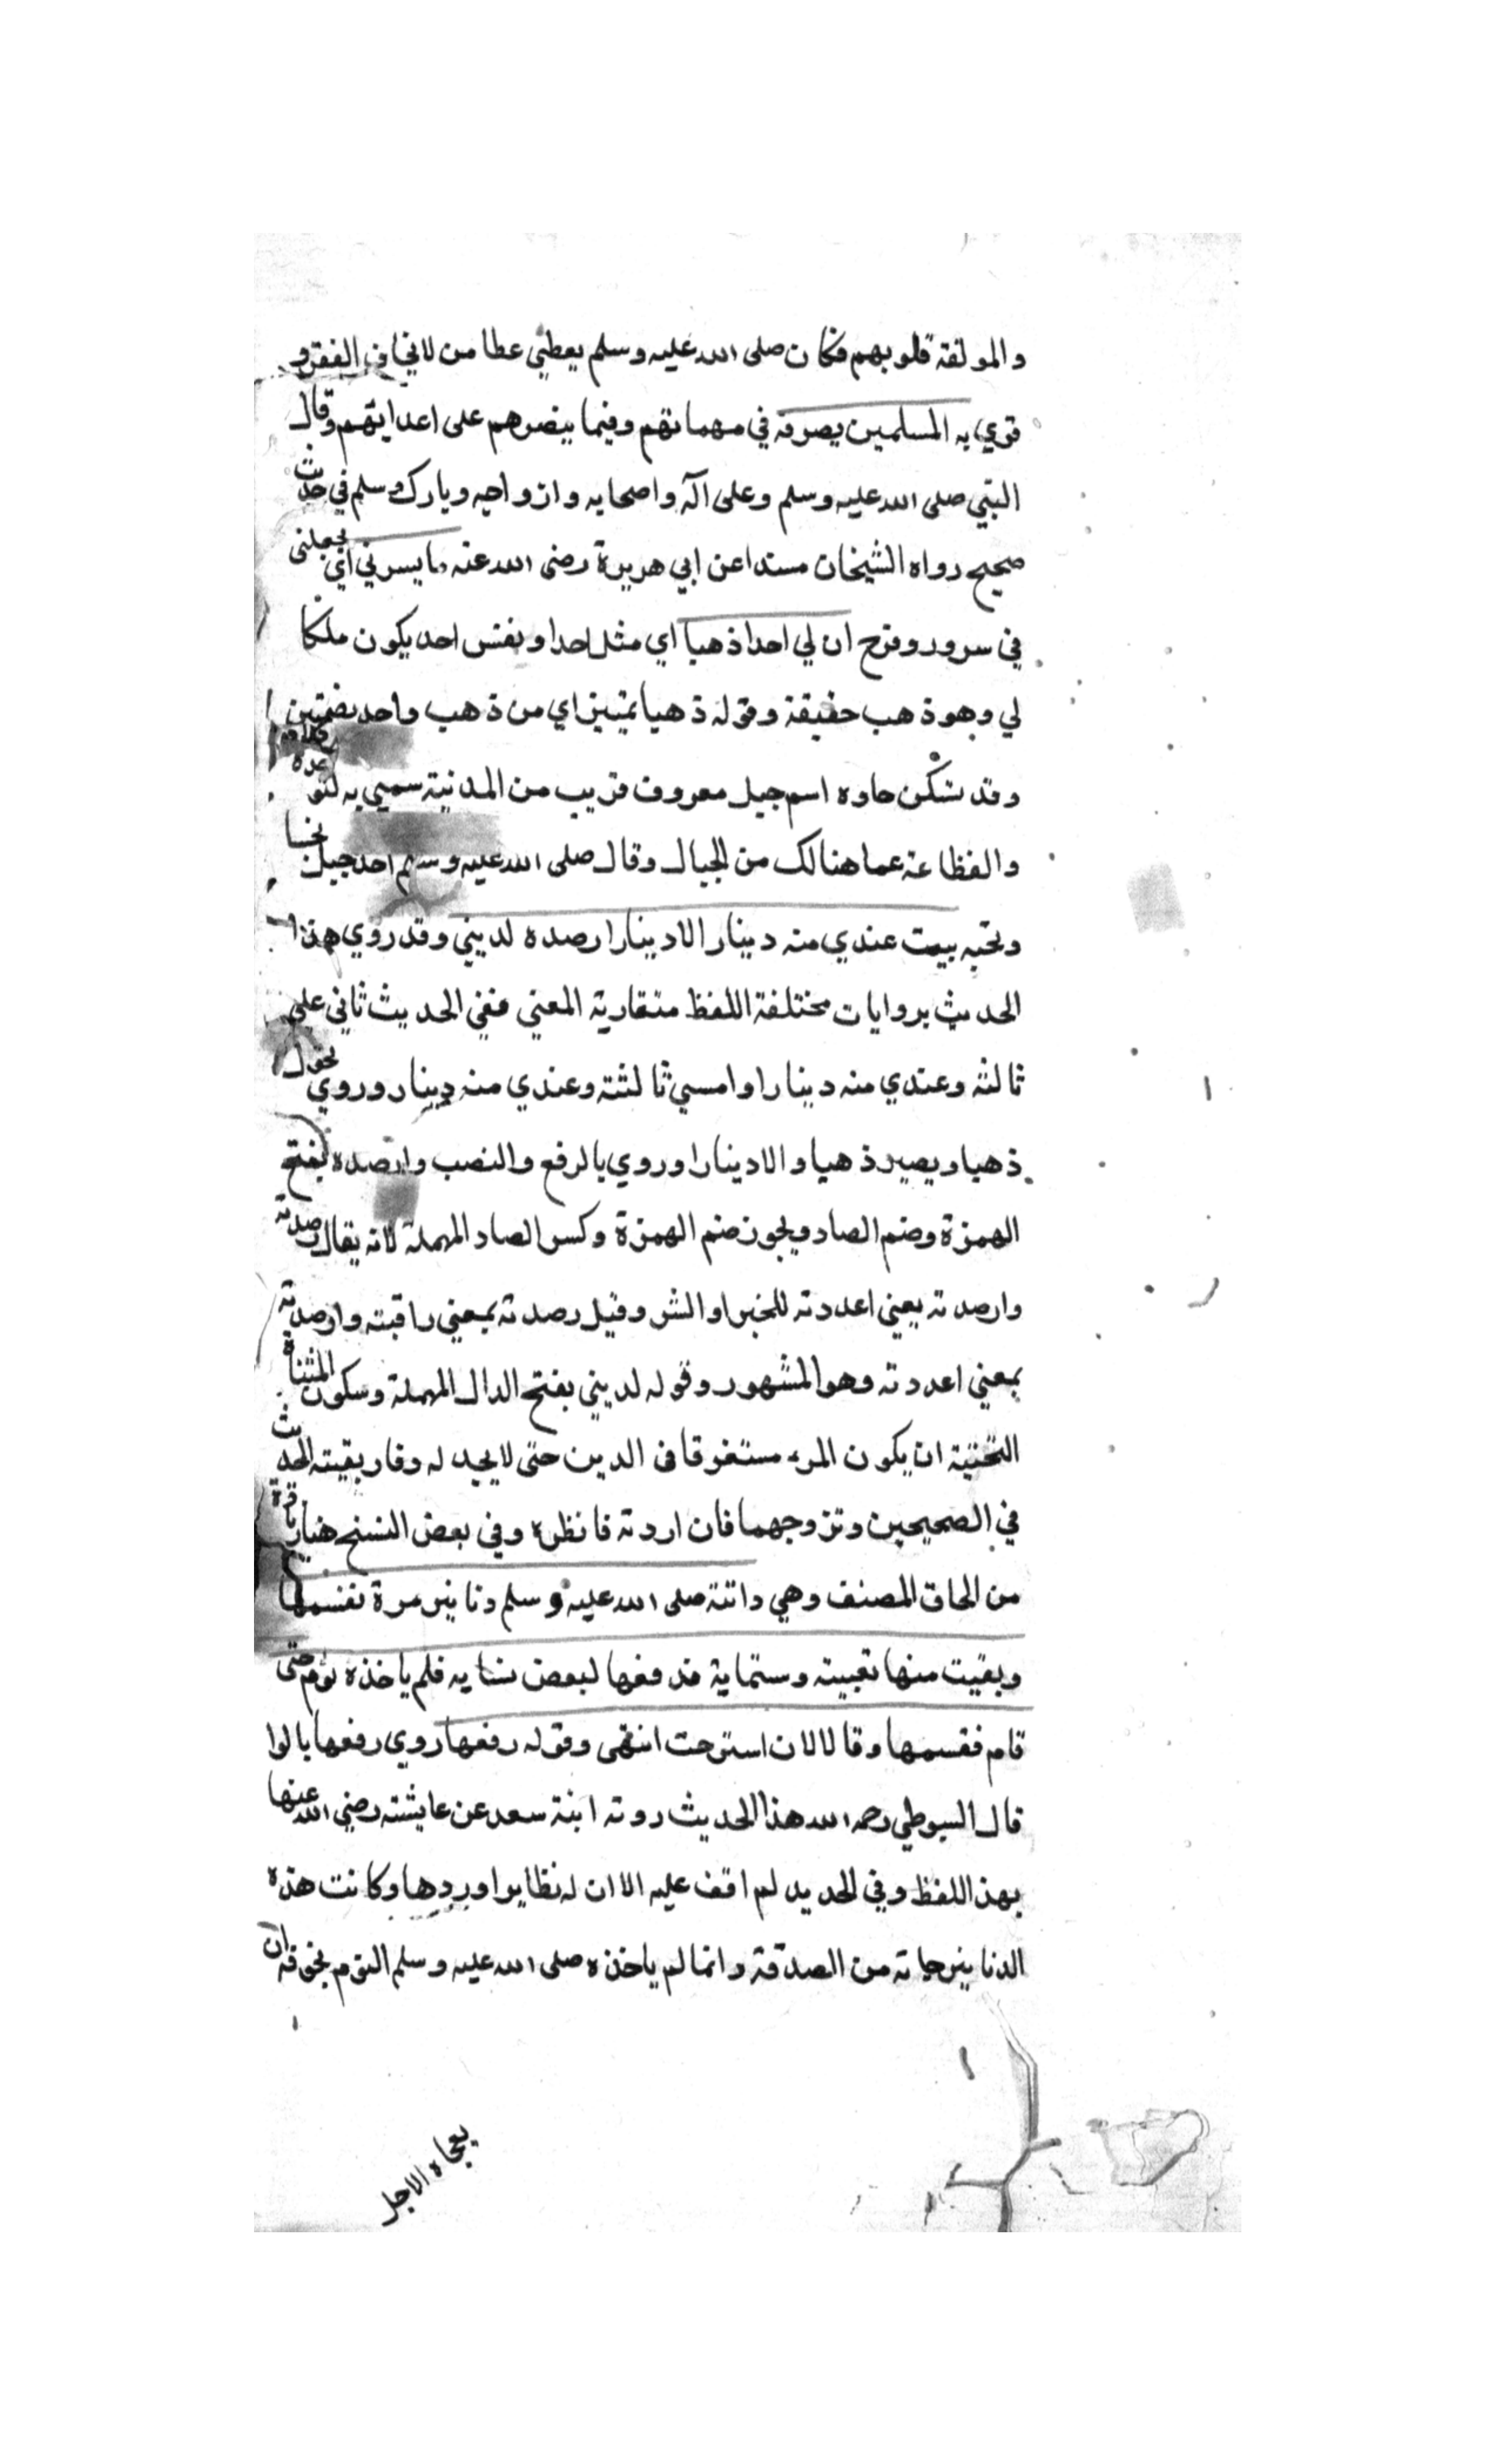 والمولفة قلوبهم فكان صلى الله عليه وسلم يعطي عطا من لايخاف الفقر و
قوي به المسلمين يصرفه في مهماتهم وفيما ينصرهم على اعدايهم وقال
النبي صلى الله عليه وسلم وعلى آله واصحابه وازواجه وبارك وسلم في حديث
صحيح رواه الشيخان مسندا عن ابي هريرة رضى الله عنه ما يسرني اي يجعلني
في سرور وفرح ان لي احدا ذهبا اي مثل احد او نفس احد يكون ملكا
لي وهو ذهب حقيقة وقوله ذهبا تمييز اي من ذهب واحد بضمتين
وقد تسكن حاوه اسم جبل معروف قريب من المدنية سمي به لتوحده
والفظاعة عما هنالك من الجبال وقال صلى الله عليه وسلم احد جبل يحبنا
ونحبه يبيت عندي منه دينار الا دينارا ارصده لديني وقد روي هذا
الحديث بروايات مختلفة اللفظ متقاربة المعني ففي الحديث ثاني علي
ثالثه وعندي منه دينارا وامسي ثالثته وعندي منه دينار وروي يحول
ذهبا ويصير ذهبا والا دينارا وروي بالرفع والنصب وارصده بفتح
الهمزة وضم الصاد ويجوز ضم الهمزة وكسر الصاد المهملة لانه يقال رصدته
وارصدته يعني اعددته للخير او الشر وقيل رصدته بمعني راقبته وارصدته
بمعني اعددته وهو المشهور وقوله لديني بفتح الدال المهملة وسكون المثناة
التحتية ان يكون المرء مستغرقا في الدين حتى لا يجد له وفا ربقيته الحديث
في الصحيحين وتزوجهما فان اردته فانظره وفي بعض النسخ هنا زيادة
من الحاق المصنف وهي واتته صلى الله عليه وسلم دنانير مرة نقسمها
وبقيت منها تقيبته وستماية فدفعها لبعض نسايه فلم ياخذه نوم حتى
قام فقسمها وقال الان استرحت انتهى وقوله رفعها روي رفعها بالوا
قال السيوطي رحمه الله هذا الحديث روته ابنة سعد عن عايشته رضي الله عنها
بهذ اللفظ وفي الحديد لم اقف عليه الا ان له نظايرا وردها وكانت هذه
الدنانير جاته من الصدقة وانما لم ياخذه صلى الله عليه وسلم النوم بخوفه ان
يفجاه الاجل